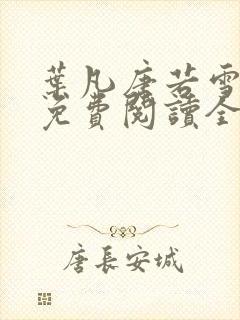 葉凡唐若雪
免費閱讀全
唐長安城